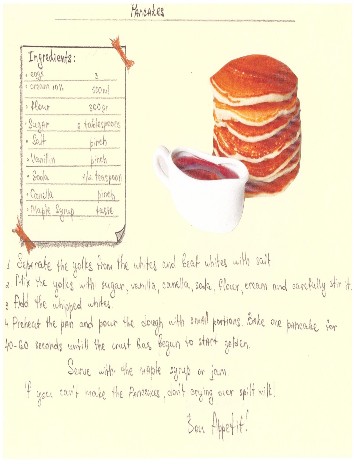 Pancakes
Ingredients:
eggs 3
cream 10% 500ml
flour 200gr
Sugar 2 tablespoons
Salt pinch
Vanilin pinch
Soda 1/2 teaspoon
Canella pinch
Maple Syrup taste
1 Seperate the yolks from the whites and beat whites with salt
2 Mix the yolks with sugar, vanilla, canella, soda, flour, cream and carefully stir it.
3 Add the whipped whites.
4 Preheat the pan and pour the dough with small portions. Bake one pancake for
40-60 seconds untill the crust has begun to start golden.
Serve with the maple syrup or jam
If you can't make the Pancakes, don't crying over spilt milk.
Bon Appetit!